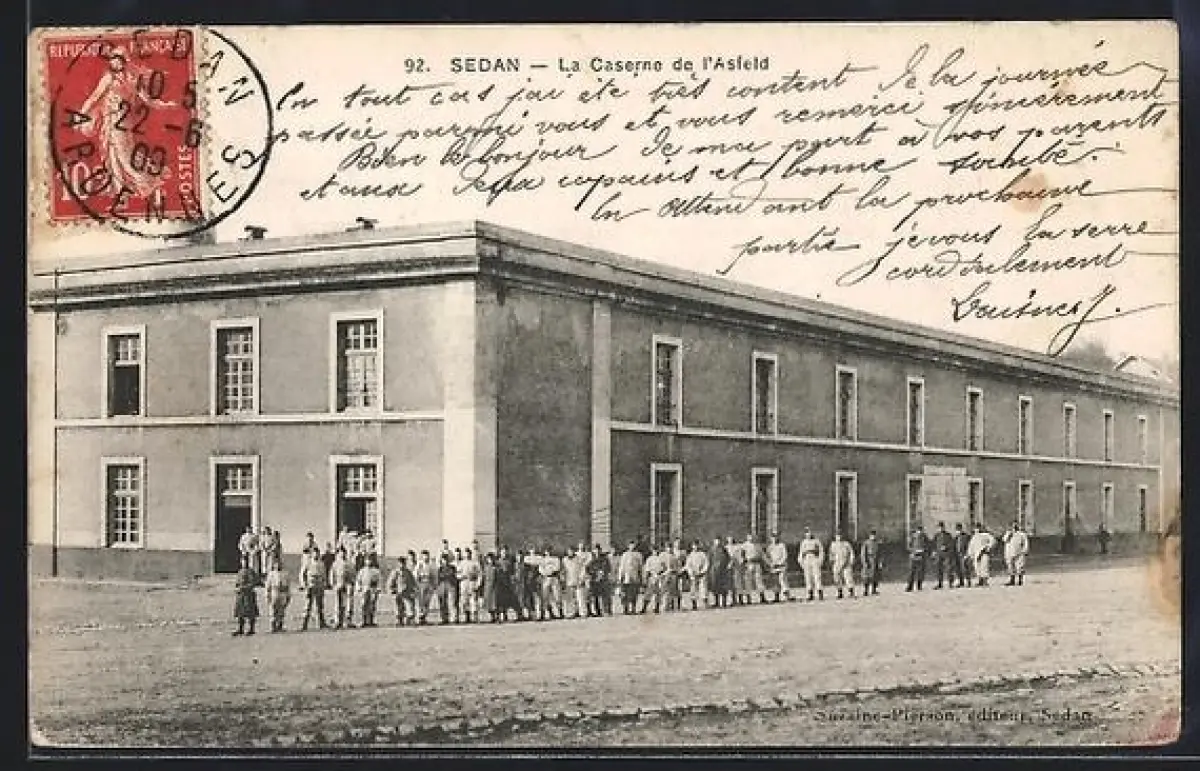 REPUBLIQUE FRANÇAISE
SEDAN
10 5
22 - 6
09
ARDENNES
10 POSTES
92. SEDAN — La Caserne de l'Asfeld
En tout cas j'ai été très content de la journée
passée parmi vous et vous remercie sincèrement
Bien le bonjour de ma part à vos parents
et aux copains et bonne santé.
En attendant la prochaine
partie je vous la serre
cordialement
Suzaine-Pierson, éditeur, Sedan